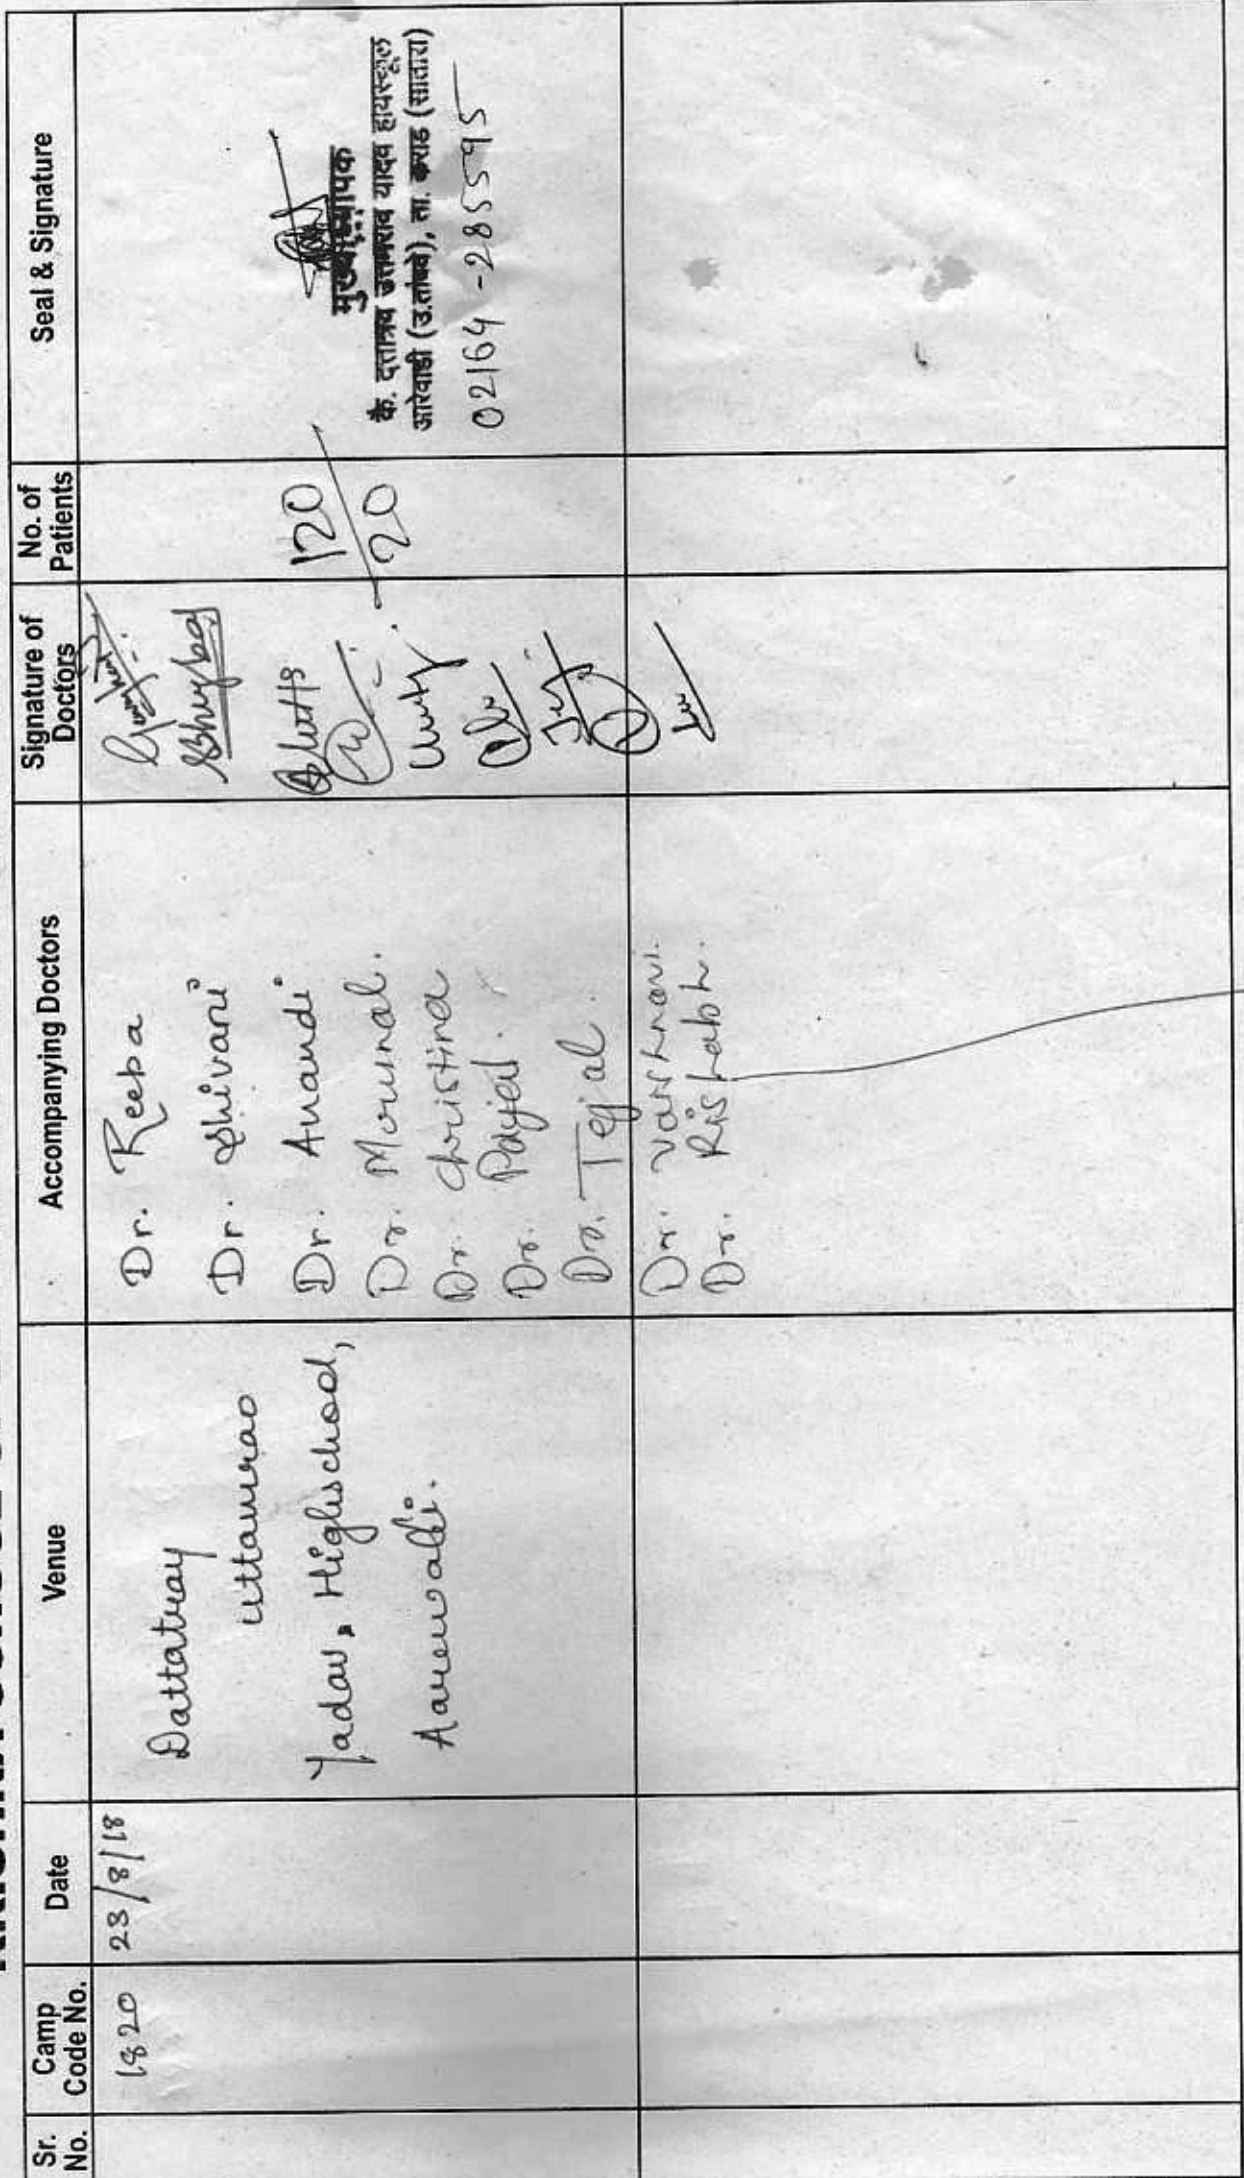 Sr. No.
Camp Code No.
Date
Venue
Accompanying Doctors
Signature of Doctors
No. of Patients
Seal & Signature
1820
23/8/18
Dattatray
Uttamrao
Yadav, Highschool,
Aarewadi.
Dr. Reeba
Dr. Shivani
Dr. Anandi
Dr. Mrunal.
Dr. Christina
Dr. Payal.
Dr. Tejal.
Dr. Vaishnavi.
Dr. Rishabh.
120
20
मुख्याध्यापक
कै. दत्तात्रय उत्तमराव यादव हायस्कूल
आरेवाडी (उ.तांबवे), ता. कराड (सातारा)
02164-285595